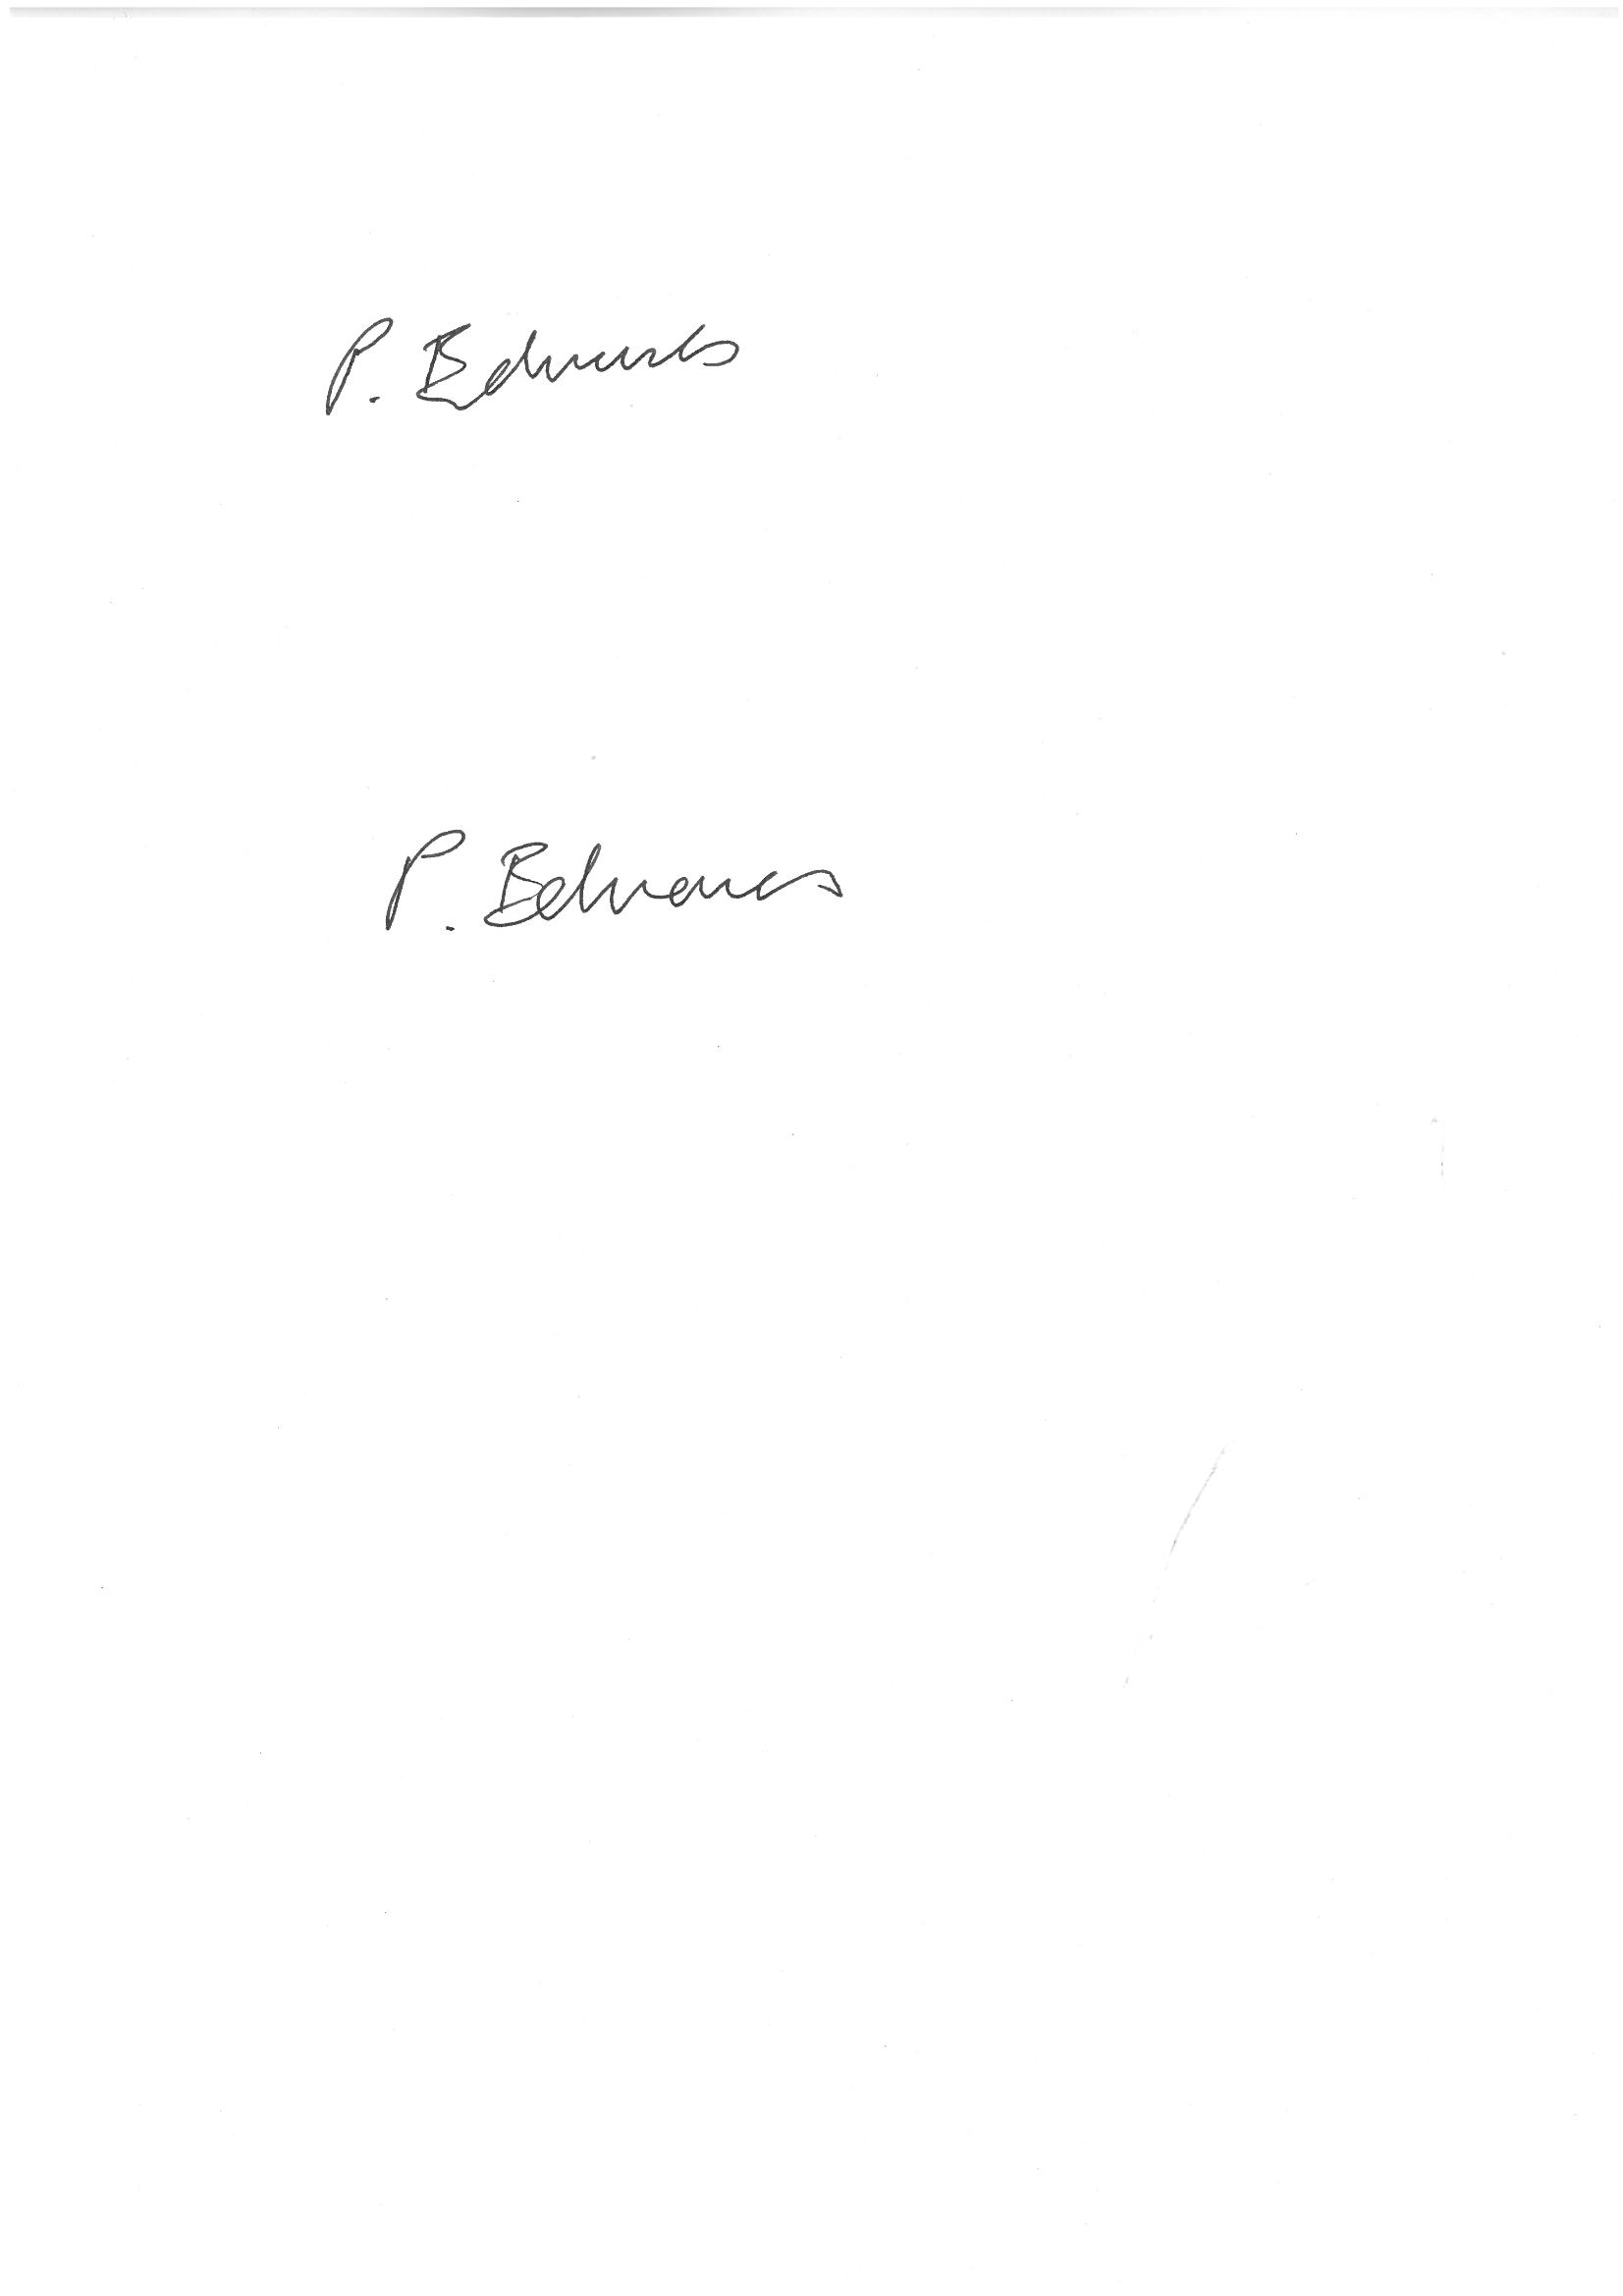 P. Edwards
P. Edwards